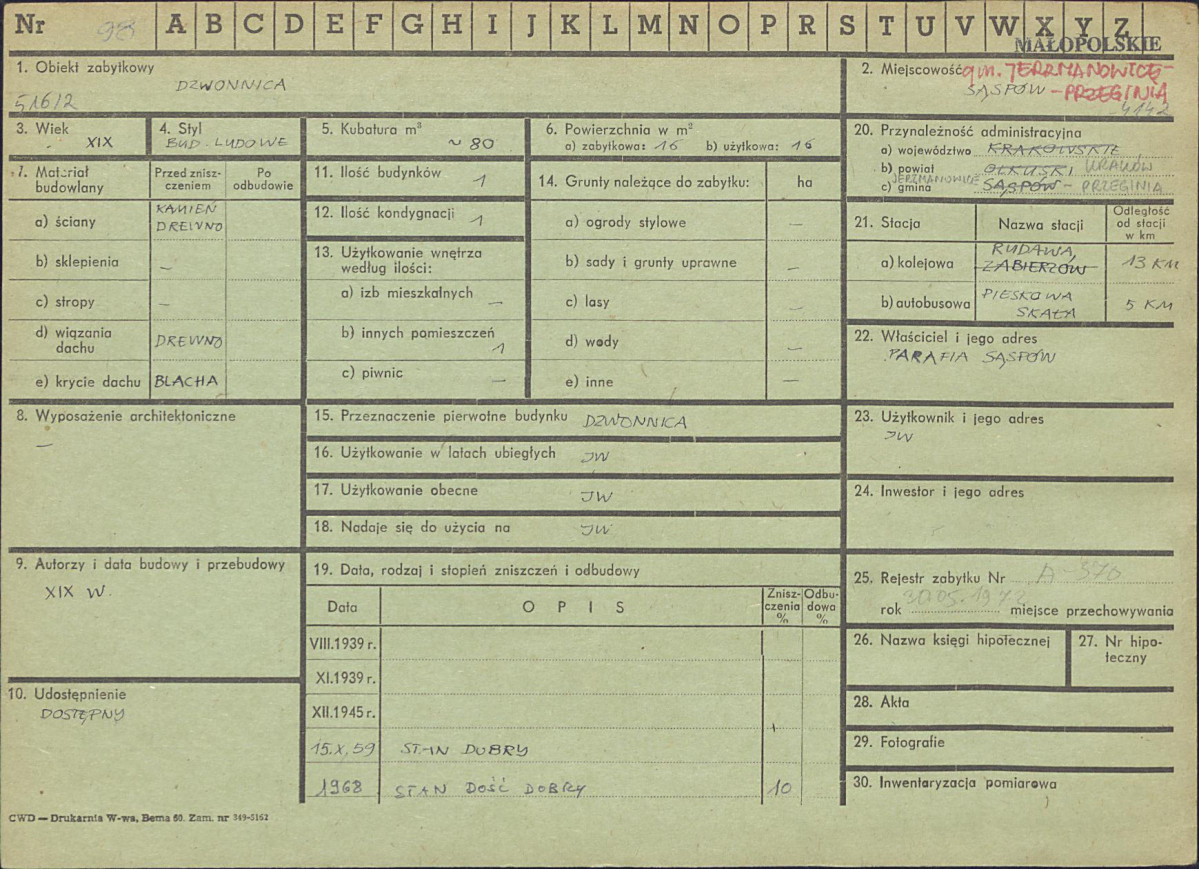 Nr 98 A B C D E F G H I J K L M N O P R S T U V W X Y Z
MAŁOPOLSKIE
1. Obiekt zabytkowy
DZWONNICA
516/2
2. Miejscowość gm. JERZMANOWICE-
SĄSPÓW - PRZEGINIA
4142
3. Wiek
XIX
4. Styl
BUD. LUDOWE
5. Kubatura m³
~ 80
6. Powierzchnia w m²
a) zabytkowa: 16 b) użytkowa: 16
7. Materiał budowlany
Przed zniszczeniem
Po odbudowie
a) ściany KAMIEŃ
DREWNO
b) sklepienia —
c) stropy —
d) wiązania dachu DREWNO
e) krycie dachu BLACHA
8. Wyposażenie architektoniczne
—
9. Autorzy i data budowy i przebudowy
XIX W.
10. Udostępnienie
DOSTĘPNY
11. Ilość budynków 1
12. Ilość kondygnacji 1
13. Użytkowanie wnętrza
według ilości:
a) izb mieszkalnych —
b) innych pomieszczeń
1
c) piwnic —
14. Grunty należące do zabytku: ha
a) ogrody stylowe —
b) sady i grunty uprawne —
c) lasy —
d) wody —
e) inne —
15. Przeznaczenie pierwotne budynku DZWONNICA
16. Użytkowanie w latach ubiegłych JW
17. Użytkowanie obecne JW
18. Nadaje się do użycia na JW
19. Data, rodzaj i stopień zniszczeń i odbudowy
Data OPIS Zniszczenia % Odbudowa %
VIII.1939 r.
XI.1939 r.
XII.1945 r.
15.X.59 STAN DOBRY
1968 STAN DOŚĆ DOBRY 10
20. Przynależność administracyjna
a) województwo KRAKOWSKIE
b) powiat OLKUSKI KRAKÓW
JERZMANOWICE
c) gmina SĄSPÓW - PRZEGINIA
21. Stacja Nazwa stacji Odległość od stacji w km
a) kolejowa RUDAWA,
ZABIERZÓW 13 KM
b) autobusowa PIESKOWA
SKAŁA 5 KM
22. Właściciel i jego adres
PARAFIA SĄSPÓW
23. Użytkownik i jego adres
JW
24. Inwestor i jego adres
25. Rejestr zabytku Nr A-370
30.05.1972
rok miejsce przechowywania
26. Nazwa księgi hipotecznej
27. Nr hipoteczny
28. Akta
29. Fotografie
30. Inwentaryzacja pomiarowa
CWD — Drukarnia W-wa, Bema 60. Zam. nr 349-5162